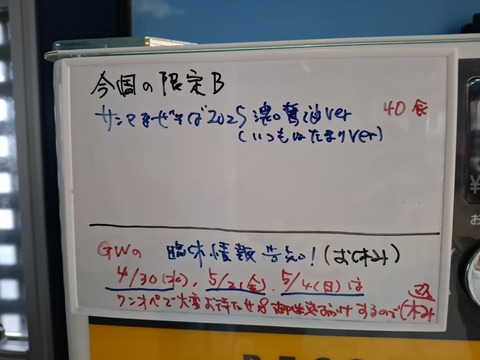 今回の限定B
サンマまぜそば2025 濃口醤油ver 40食
(いつもはたまりver)
GWの 臨休情報告知!(お休み)
4/30(水)、5/2(金)、5/4(日)は
ワンオペで大変お待たせ&御迷惑お掛けするので休み